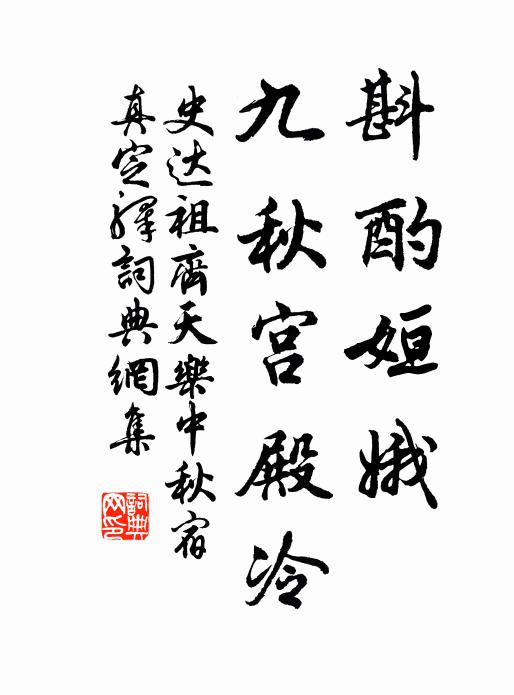 斟酌姮娥
九秋宫殿冷
史达祖齊天樂中秋宿
真定驛詞典網集
詞典网印